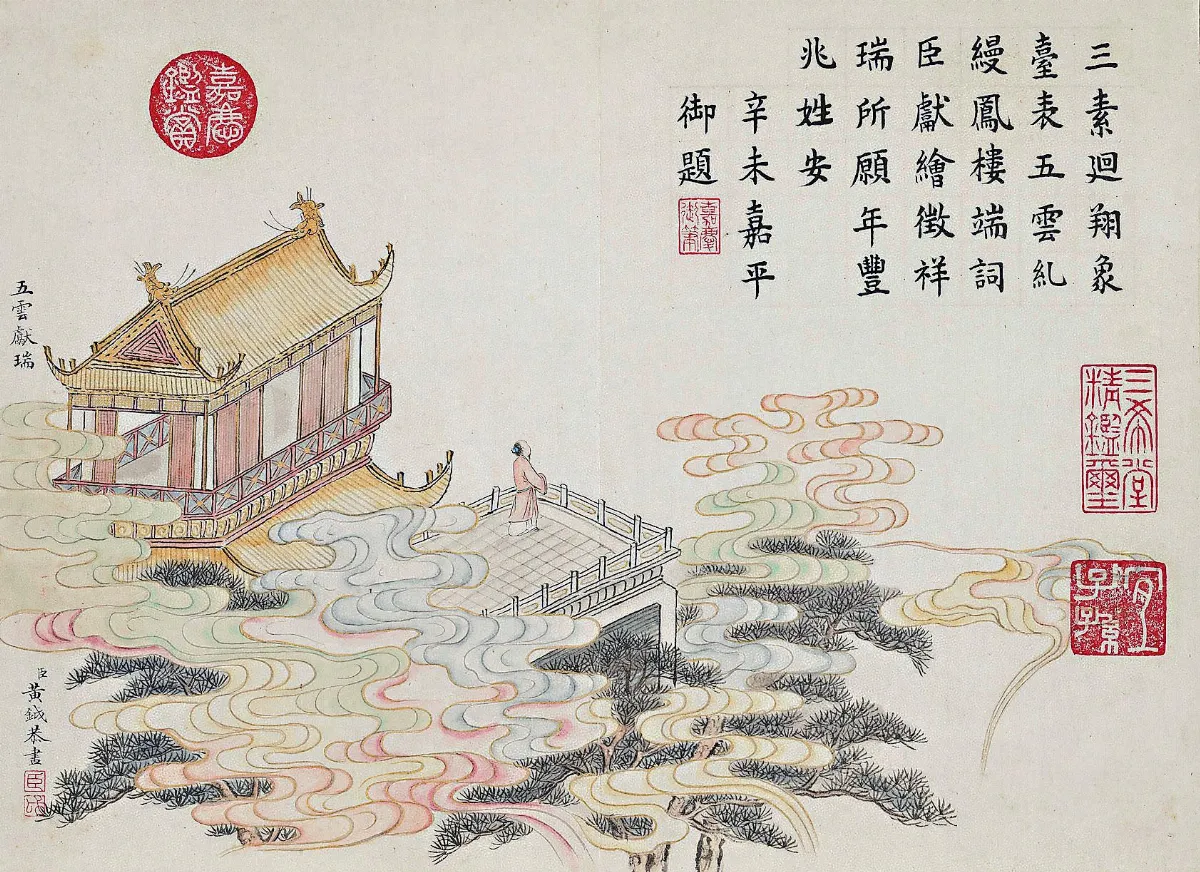 三素迴翔象
臺表五雲糺
縵鳳樓端詞
臣獻繪徵祥
瑞所願年豐
兆姓安
辛未嘉平
御題
嘉慶
御筆
三希堂
精鑑璽
宜
子孫
嘉慶
鑑賞
五雲獻瑞
臣黃鉞恭畫